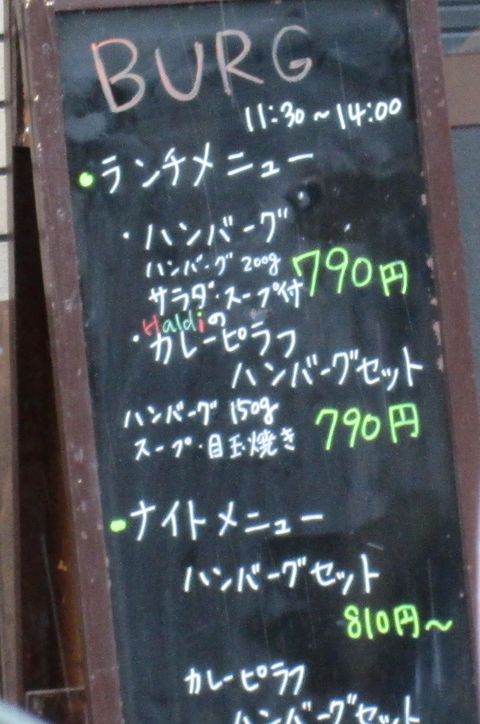 BURG
11:30～14:00
・ランチメニュー
・ハンバーグ
ハンバーグ 200g
サラダ・スープ付 790円
Haldiの
・カレーピラフ
ハンバーグセット
ハンバーグ 150g
スープ・目玉焼き 790円
・ナイトメニュー
ハンバーグセット
810円～
カレーピラフ
ハンバーグセット